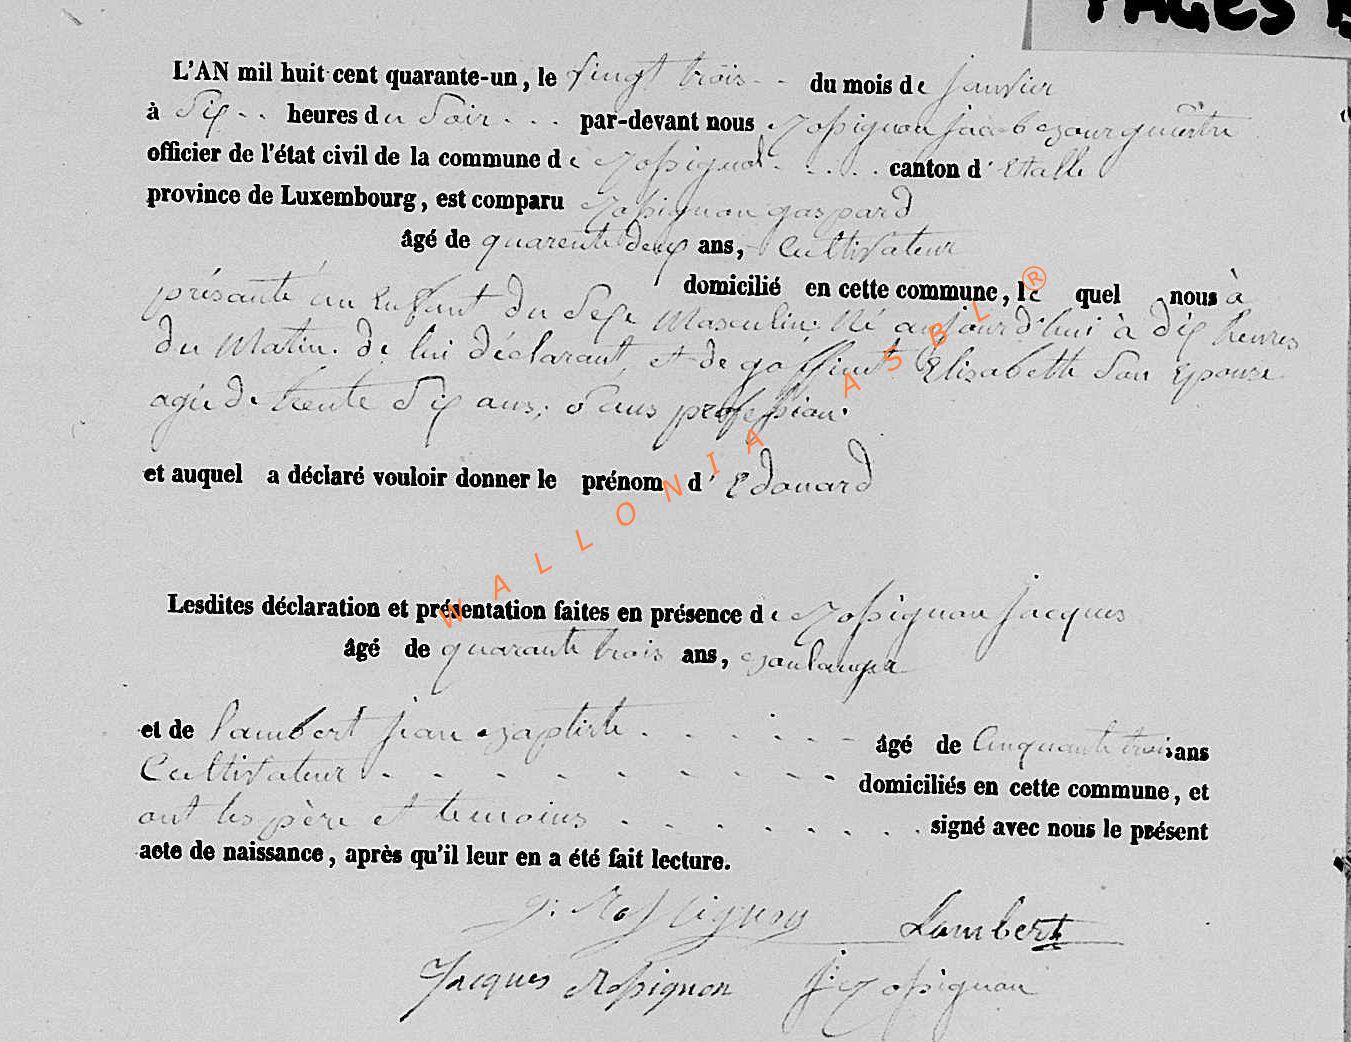 PAGES
L'AN mil huit cent quarante-un, le vingt trois - - du mois de janvier
à Six - - heures du Soir - - - par-devant nous Rossignon jacob bourguestre
officier de l'état civil de la commune de Rossignol - - - - canton d'Etalle
province de Luxembourg, est comparu Rossignon gaspard
âgé de quarente deux ans, Cultivateur
domicilié en cette commune, le quel nous à
présanté un Enfant du Sexe Masculin. Né aujourd'hui à dix heures
du Matin. de lui déclarant, et de goffinet Elisabette Son Epouse
agée de trente Six ans, Sans profession.
et auquel a déclaré vouloir donner le prénom d'Edouard
Lesdites déclaration et présentation faites en présence de Rossignon jacques
âgé de quarante trois ans, boulanger
et de Lambert jean baptiste - - - - - - âgé de Cinquante trois ans
Cultivateur - - - - - - - - - domiciliés en cette commune, et
ont les père et temoins - - - - - - - - signé avec nous le présent
acte de naissance, après qu'il leur en a été fait lecture.
g: Rossignon Lambert
Jacques Rossignon J: Rossignon
WALLONIA ASBL ®